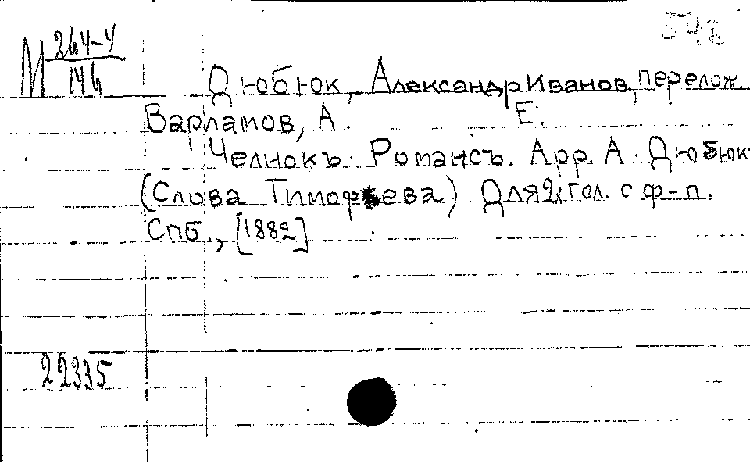 М 264-4/146
Дюбюк, Александр Иванов, перелож
Варламов, А. Е.
Челнокъ. Романсъ. Арр. А. Дюбюк
(Слова Тимофѣева) Для 2х гол. с ф-п.
Спб., [1882]
22335